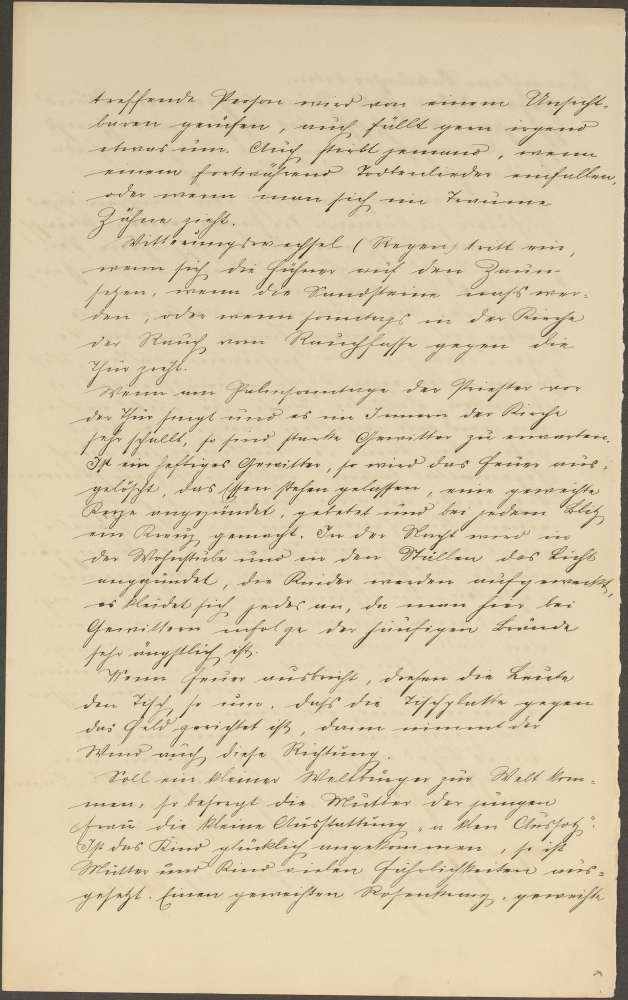 treffende Person wird von einem Unsicht-
baren gerufen, auch fällt gern irgend
etwas um. Auch stirbt jemand, wenn
einem fortwährend Todtenlieder einfallen,
oder wenn man sich im Traume
Zähne zieht.
Witterungswechsel (Regen) tritt ein,
wenn sich die Hühner auf den Zaun
setzen, wenn die Sandsteine naß wer-
den, oder wenn sonntags in der Kirche
der Rauch vom Rauchfasse gegen die
Thür zieht.
Wenn am Palmsonntage der Priester vor
der Thür singt und es im Innern der Kirche
sehr schallt, so sind starke Gewitter zu erwarten.
Ist ein heftiges Gewitter, so wird das Feuer aus-
gelöscht, das Essen stehen gelassen, eine geweihte
Kerze angezündet, gebetet und bei jedem Blitz
ein Kreuz gemacht. In der Nacht wird in
der Wohnstube und in den Ställen das Licht
angezündet, die Kinder werden aufgeweckt,
es kleidet sich jedes an, da man hier bei
Gewittern infolge der häufigen Brände
sehr ängstlich ist.
Wenn Feuer ausbricht, drehen die Leute
den Tisch so um, daß die Tischplatte gegen
das Feld gerichtet ist, dann nimmt der
Wind auch diese Richtung.
Soll ein kleiner Weltbürger zur Welt kom-
men, so besorgt die Mutter der jungen
Frau die kleine Ausstattung, „a klen Aussatz".
Ist das Kind glücklich angekommen, so ist
Mutter und Kind vielen Fährlichkeiten aus-
gesetzt. Einen geweihten Rosenkranz, geweihte